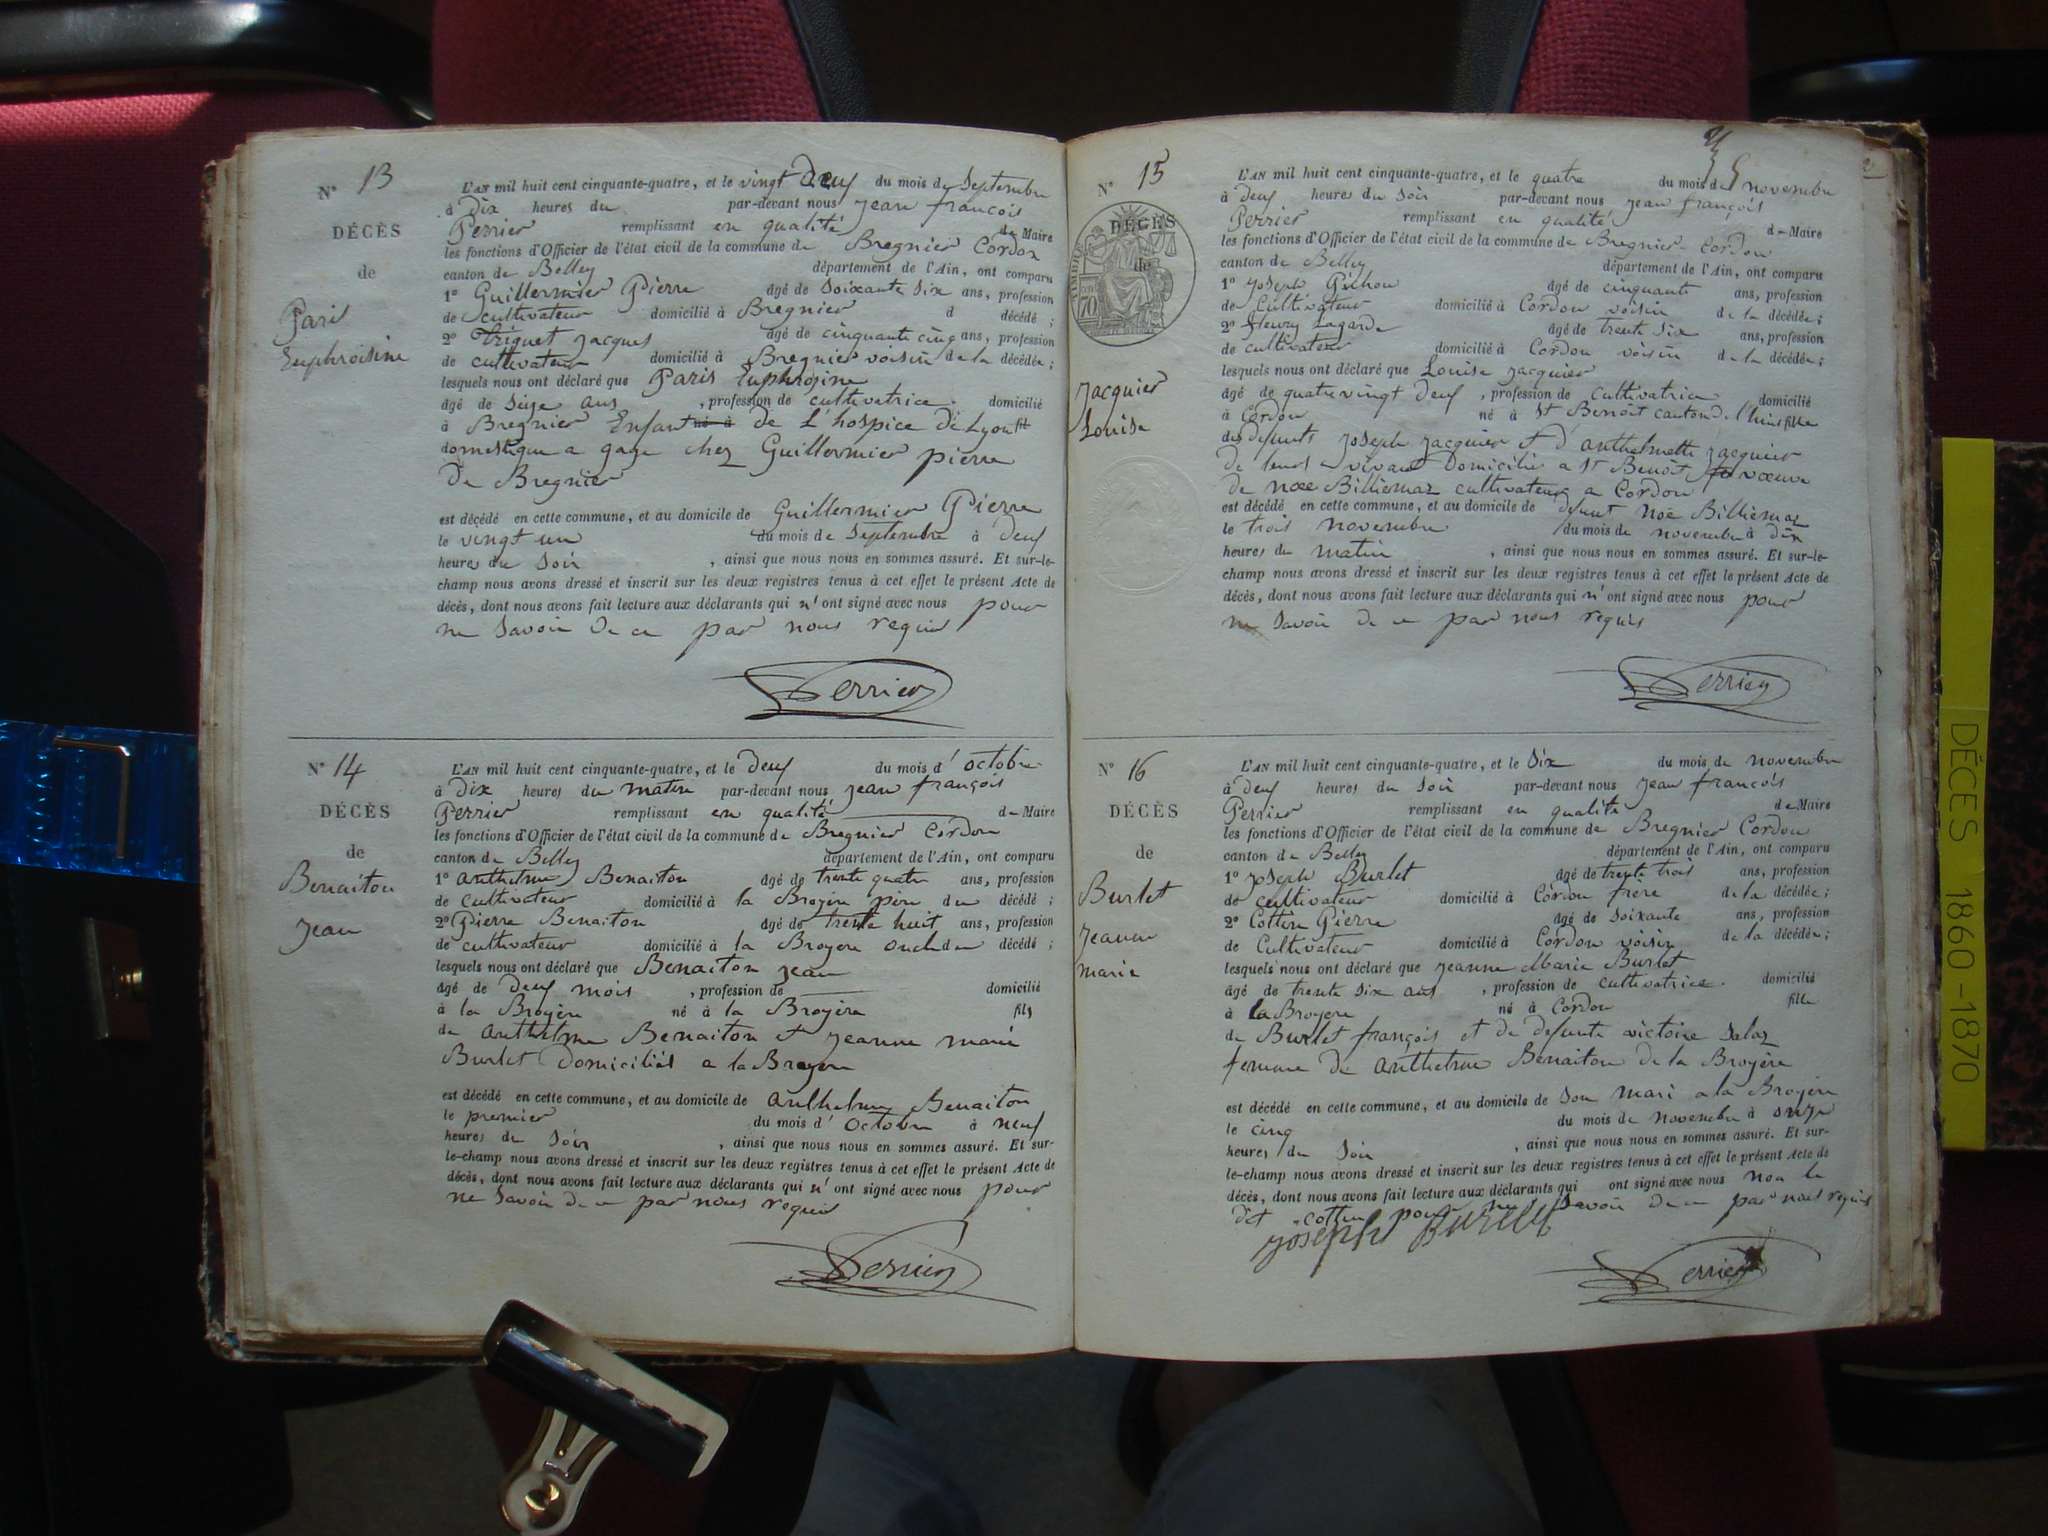 N° 13
DÉCÈS
de
Paris
Euphroisine
L'AN mil huit cent cinquante-quatre, et le vingt deux du mois de Septembre
à Dix heures du par-devant nous Jean françois
Perrier remplissant en qualité de Maire
les fonctions d'Officier de l'état civil de la commune de Bregnier Cordon
canton de Belley département de l'Ain, ont comparu
1° Guillermier Pierre âgé de Soixante Six ans, profession
de cultivateur domicilié à Bregnier d décédé ;
2° Triquet Jacques âgé de cinquante cinq ans, profession
de cultivateur domicilié à Bregnier voisin de la décédée ;
lesquels nous ont déclaré que Paris Euphrosine
âgé de Seize ans , profession de cultivatrice domicilié
à Bregnier Enfant né à de L'hospice de Lyon fil
domestique a gage chez Guillermier pierre
De Bregnier
est décédé en cette commune, et au domicile de Guillermier Pierre
le vingt un du mois de Septembre à deux
heures du Soir , ainsi que nous nous en sommes assuré. Et sur-le-
champ nous avons dressé et inscrit sur les deux registres tenus à cet effet le présent Acte de
décès, dont nous avons fait lecture aux déclarants qui n'ont signé avec nous pour
ne Savoir de ce par nous requis
Perrier
N° 14
DÉCÈS
de
Benaiton
Jean
L'AN mil huit cent cinquante-quatre, et le deux du mois d'octobre
à dix heures du matin par-devant nous Jean françois
Perrier remplissant en qualité de Maire
les fonctions d'Officier de l'état civil de la commune de Bregnier Cordon
canton de Belley département de l'Ain, ont comparu
1° Anthelme Benaiton âgé de trente quatre ans, profession
de cultivateur domicilié à la Broyère père du décédé ;
2° Pierre Benaiton âgé de trente huit ans, profession
de cultivateur domicilié à la Broyere oncle du décédé ;
lesquels nous ont déclaré que Benaiton Jean
âgé de deux mois , profession de domicilié
à la Broyère né à la Broyère fils
de Anthelme Benaiton et Jeanne marie
Burlet Domiciliés a la Broyere
est décédé en cette commune, et au domicile de Anthelme Benaiton
le premier du mois d'octobre à neuf
heures du Soir , ainsi que nous nous en sommes assuré. Et sur-
le-champ nous avons dressé et inscrit sur les deux registres tenus à cet effet le présent Acte de
décès, dont nous avons fait lecture aux déclarants qui n'ont signé avec nous pour
ne Savoir de ce par nous requis
Perrier
N° 15
DÉCÈS
de
Jacquier
Louise
L'AN mil huit cent cinquante-quatre, et le quatre du mois de novembre
à deux heure du Soir par-devant nous Jean françois
Perrier remplissant en qualité de Maire
les fonctions d'Officier de l'état civil de la commune de Bregnier-Cordon
canton de Belley département de l'Ain, ont comparu
1° Joseph Pichon âgé de cinquante ans, profession
de Cultivateur domicilié à Cordon voisin de la décédée ;
2° fleury Lagarde âgé de trente Six ans, profession
de cultivateur domicilié à Cordon voisin de la décédée ;
lesquels nous ont déclaré que Louise Jacquier
âgé de quatre vingt deux , profession de Cultivatrice domicilié
à Cordon né à St Benoit canton de l'huis fille
des defunts Joseph Jacquier et d'anthelmette Jacquier
de leurs vivant Domicilié a St Benoit voeuve
de noee Billiemaz cultivateur a Cordon
est décédé en cette commune, et au domicile de defunt noé Billiemaz
le trois novembre du mois de novembre à dix
heures du matin , ainsi que nous nous en sommes assuré. Et sur-le-
champ nous avons dressé et inscrit sur les deux registres tenus à cet effet le présent Acte de
décès, dont nous avons fait lecture aux déclarants qui n'ont signé avec nous pour
ne Savoir de ce par nous requis
Perrier
N° 16
DÉCÈS
de
Burlet
Jeanne
marie
L'AN mil huit cent cinquante-quatre, et le Six du mois de novembre
à deux heures du Soir par-devant nous Jean françois
Perrier remplissant en qualité de Maire
les fonctions d'Officier de l'état civil de la commune de Bregnier Cordon
canton de Belley département de l'Ain, ont comparu
1° Joseph Burlet âgé de trente trois ans, profession
de cultivateur domicilié à Cordon frère de la décédée ;
2° Cottin Pierre âgé de Soixante ans, profession
de Cultivateur domicilié à Cordon voisin de la décédée ;
lesquels nous ont déclaré que Jeanne Marie Burlet
âgé de trente Six ans , profession de cultivatrice domicilié
à la Broyere né à Cordon fille
de Burlet françois et de defunte victoire
femme de Anthelme Benaiton de la Broyère
est décédé en cette commune, et au domicile de Son mari a la Broyère
le cinq du mois de novembre à onze
heures du Soir , ainsi que nous nous en sommes assuré. Et sur-
le-champ nous avons dressé et inscrit sur les deux registres tenus à cet effet le présent Acte de
décès, dont nous avons fait lecture aux déclarants qui ont signé avec nous non le
dit Cottin pour ne Savoir de ce par nous requis
Joseph Burlet
Perrier
DÉCES 1860-1870